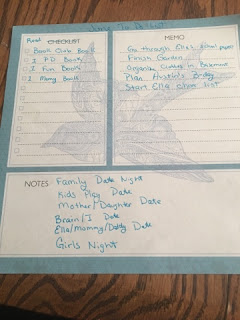 June To Do List
Read CHECKLIST
Book Club Book
1 PD Book
1 Fun Book
1 Mercy Book
MEMO
Go through Ella's school papers
Finish Garden
Organize Clothes in Basement
Plan Austin's B-day
Start Ella chore list
NOTES Family Date Night
Kids Play Date
Mother/Daughter Date
Brain/I Date
Ella/Mommy/Daddy Date
Girls Night